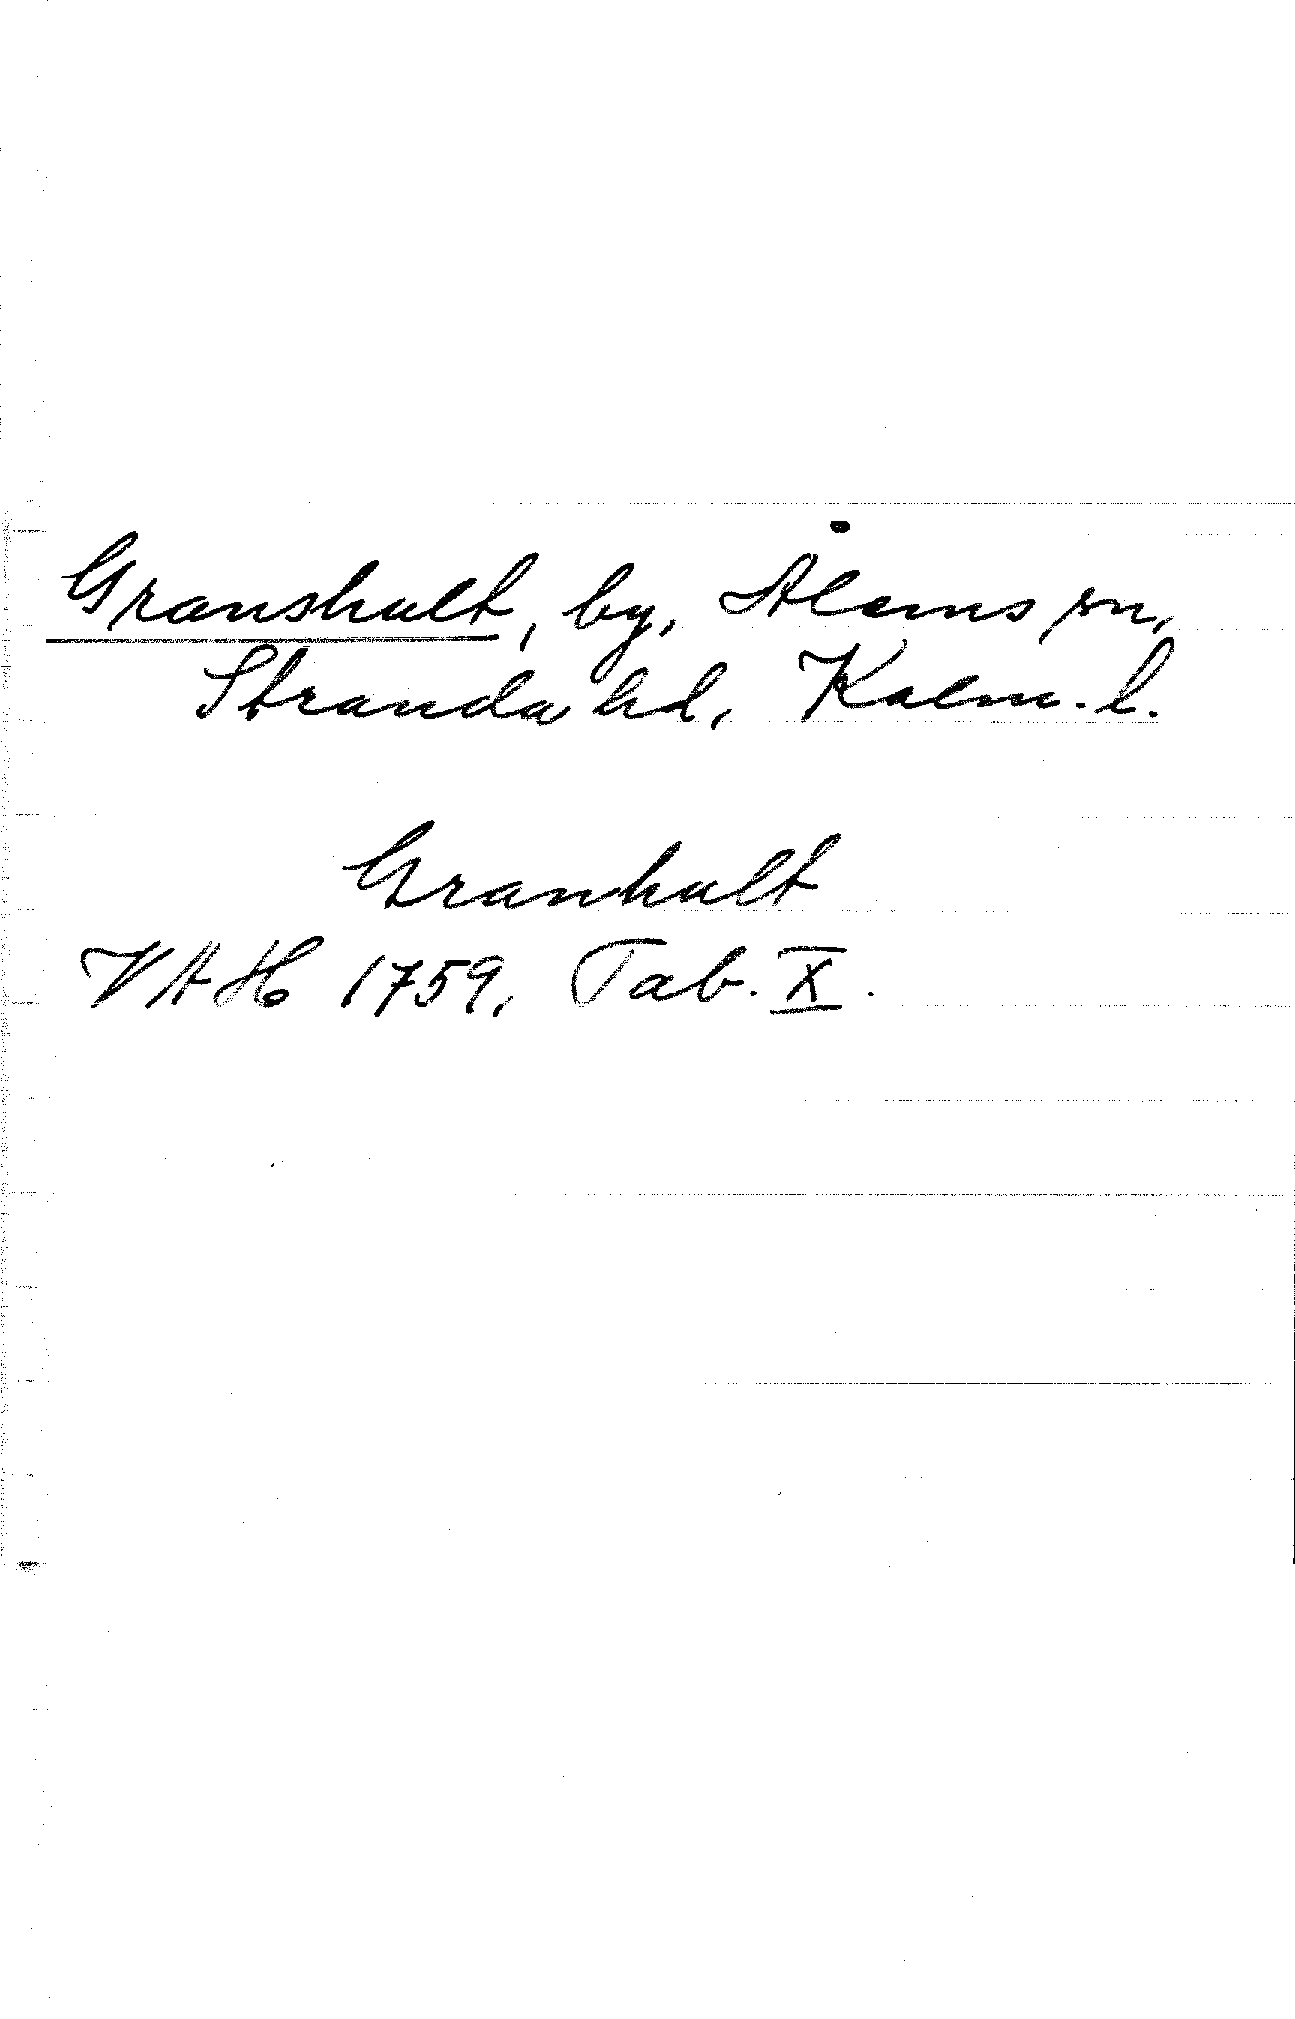 Granshult, by, Ålems sn,
Stranda hd, Kalm. l.
Granhult
VAH 1759, Tab. X.